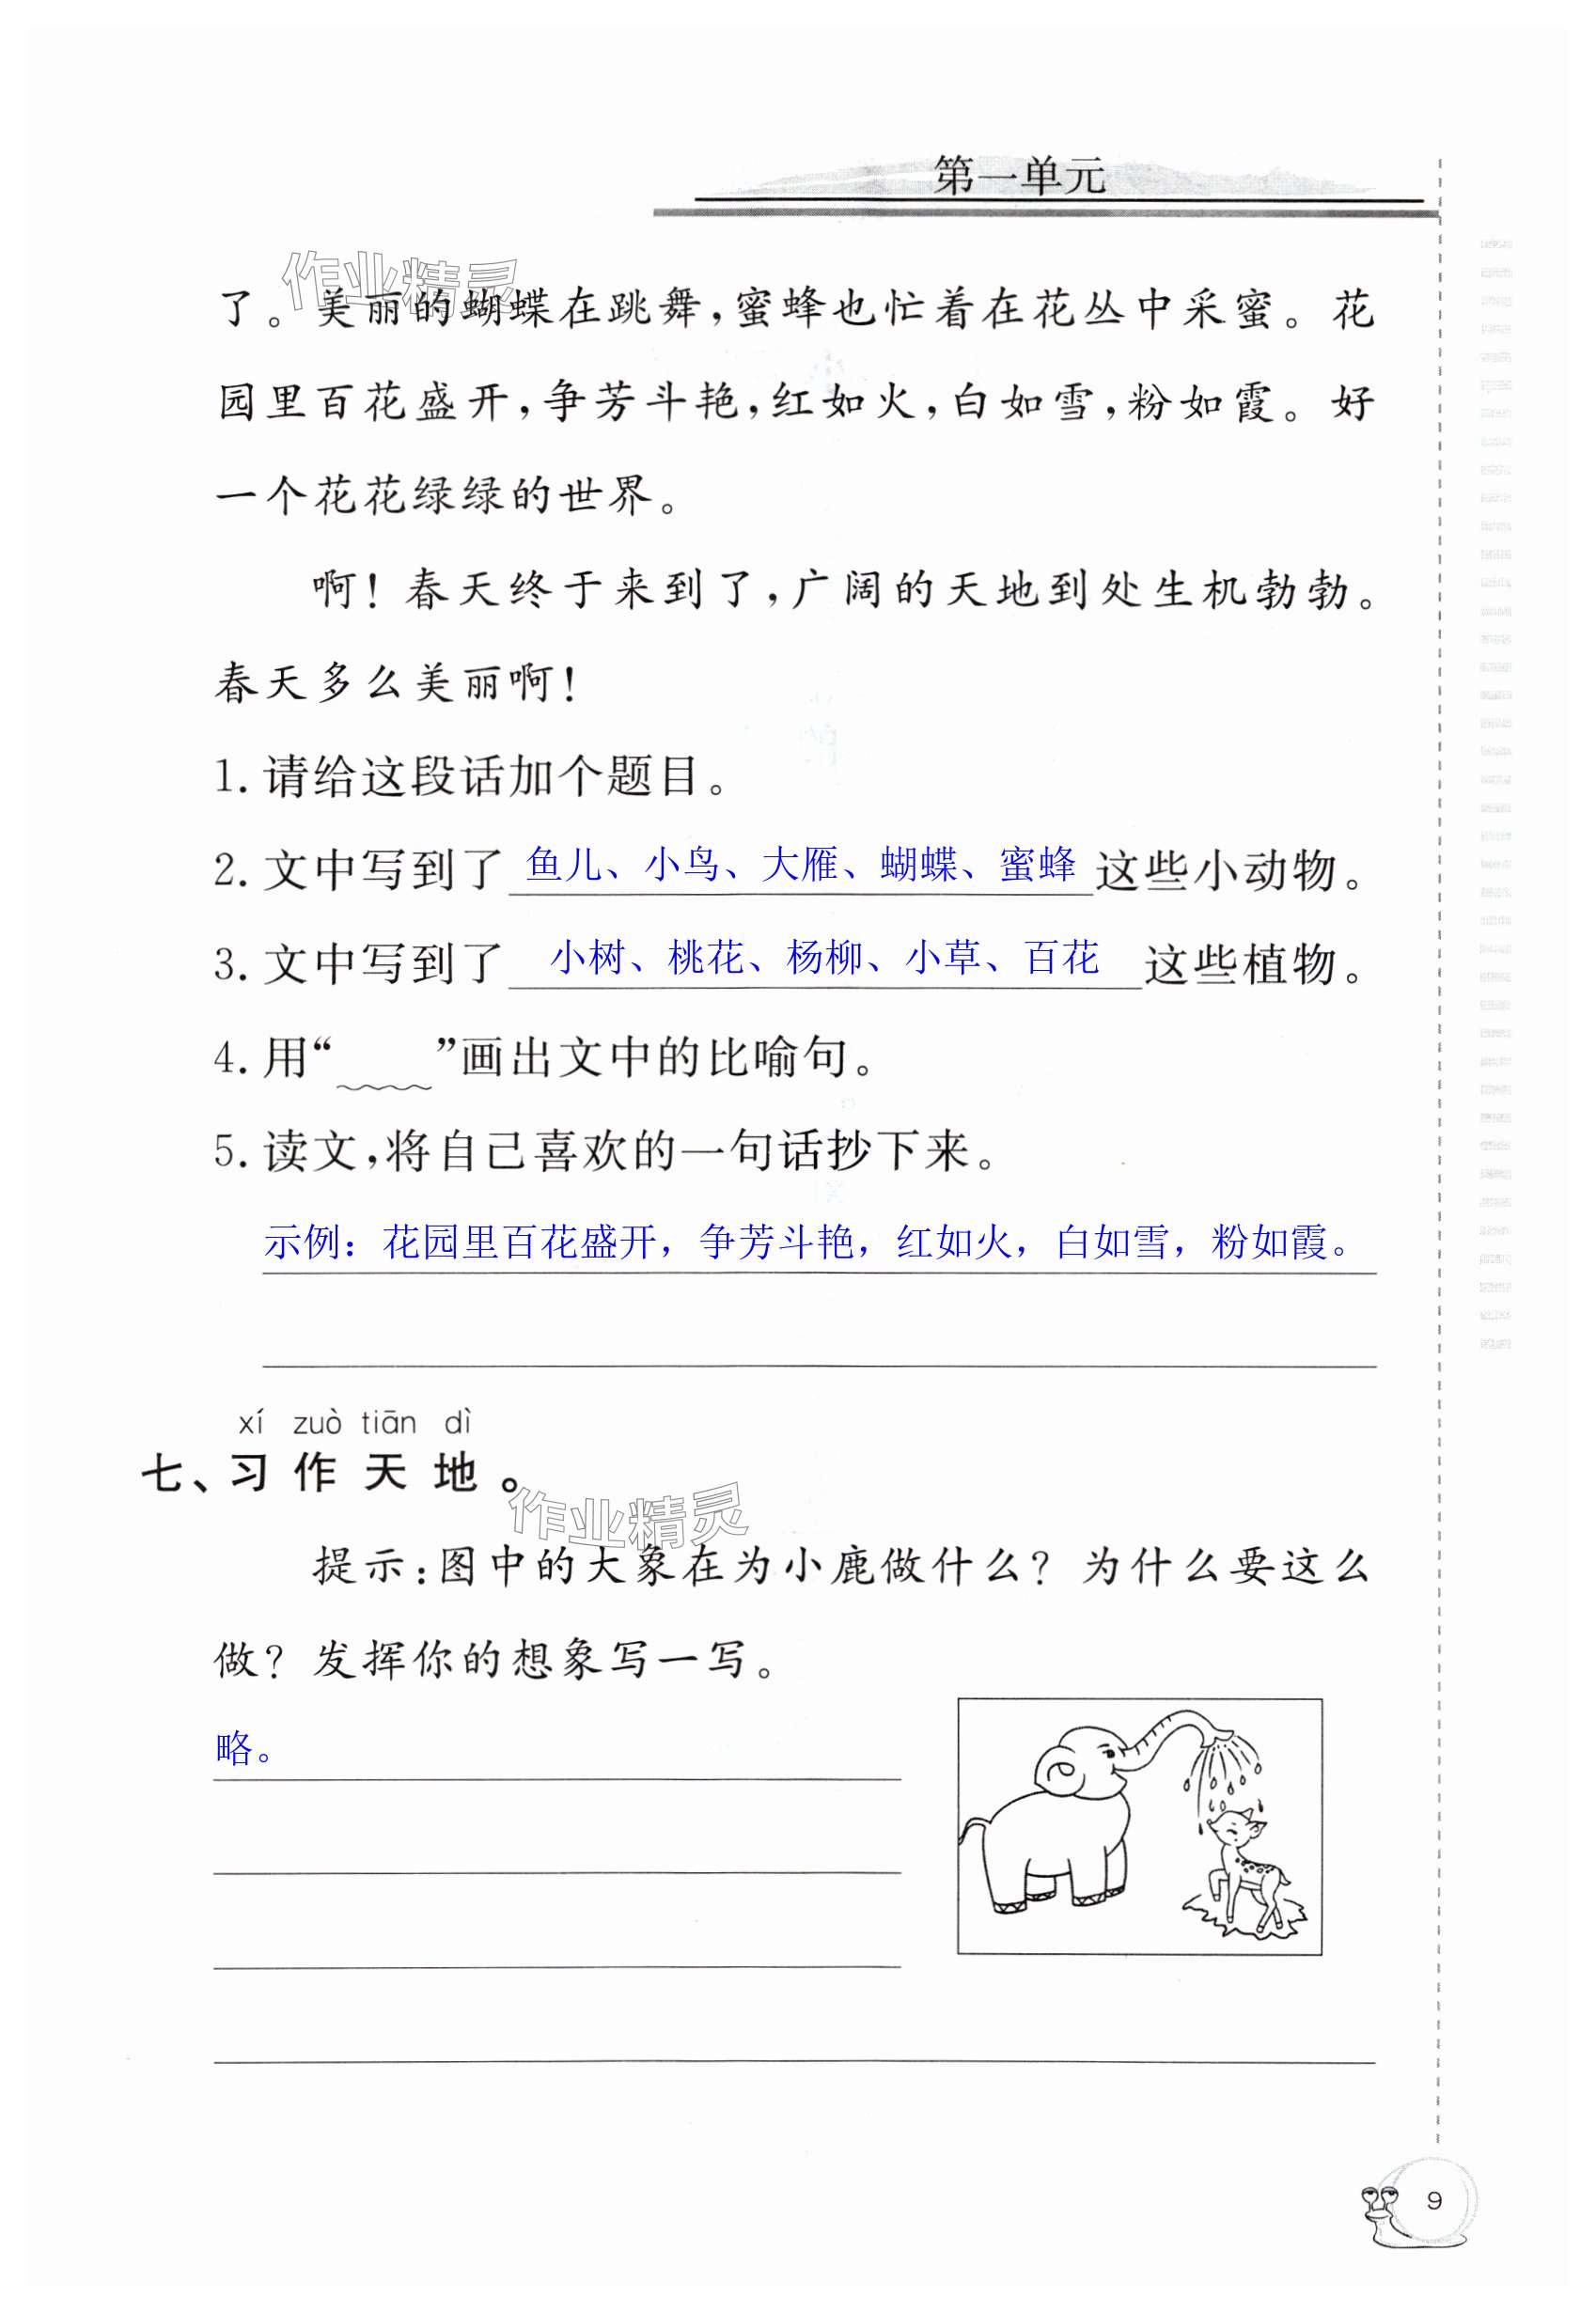 第一单元
作业精灵
了。美丽的蝴蝶在跳舞,蜜蜂也忙着在花丛中采蜜。花
园里百花盛开,争芳斗艳,红如火,白如雪,粉如霞。好
一个花花绿绿的世界。
啊!春天终于来到了,广阔的天地到处生机勃勃。
春天多么美丽啊!
1. 请给这段话加个题目。
2. 文中写到了 鱼儿、小鸟、大雁、蝴蝶、蜜蜂 这些小动物。
3. 文中写到了 小树、桃花、杨柳、小草、百花 这些植物。
4. 用“ ”画出文中的比喻句。
5. 读文,将自己喜欢的一句话抄下来。
示例：花园里百花盛开，争芳斗艳，红如火，白如雪，粉如霞。
xí zuò tiān dì
七、习作天地。
作业精灵
提示:图中的大象在为小鹿做什么?为什么要这么
做?发挥你的想象写一写。
略。
9